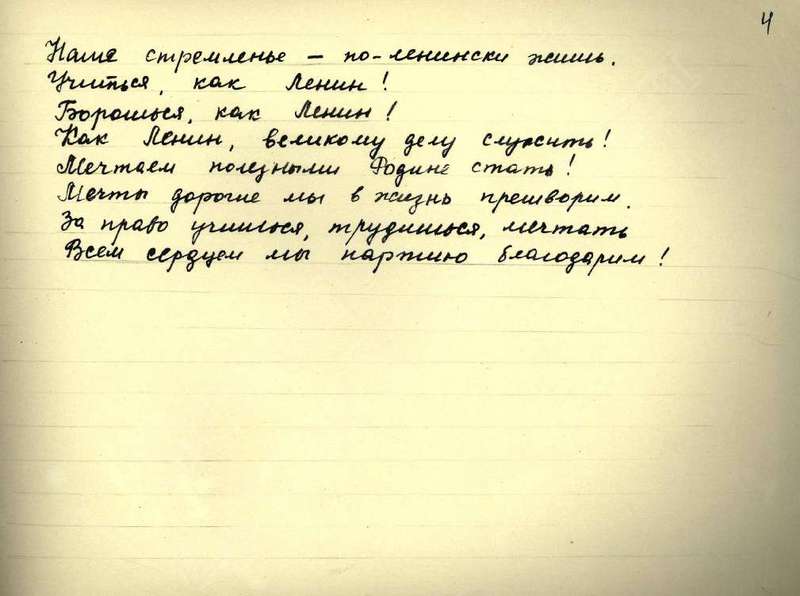 4
Наше стремленье – по-ленински жить.
Учиться, как Ленин!
Бороться, как Ленин!
Как Ленин, великому делу служить!
Мечтаем полезными Родине стать!
Мечты дорогие мы в жизнь претворим.
За право учиться, трудиться, мечтать
Всем сердцем мы партию благодарим!